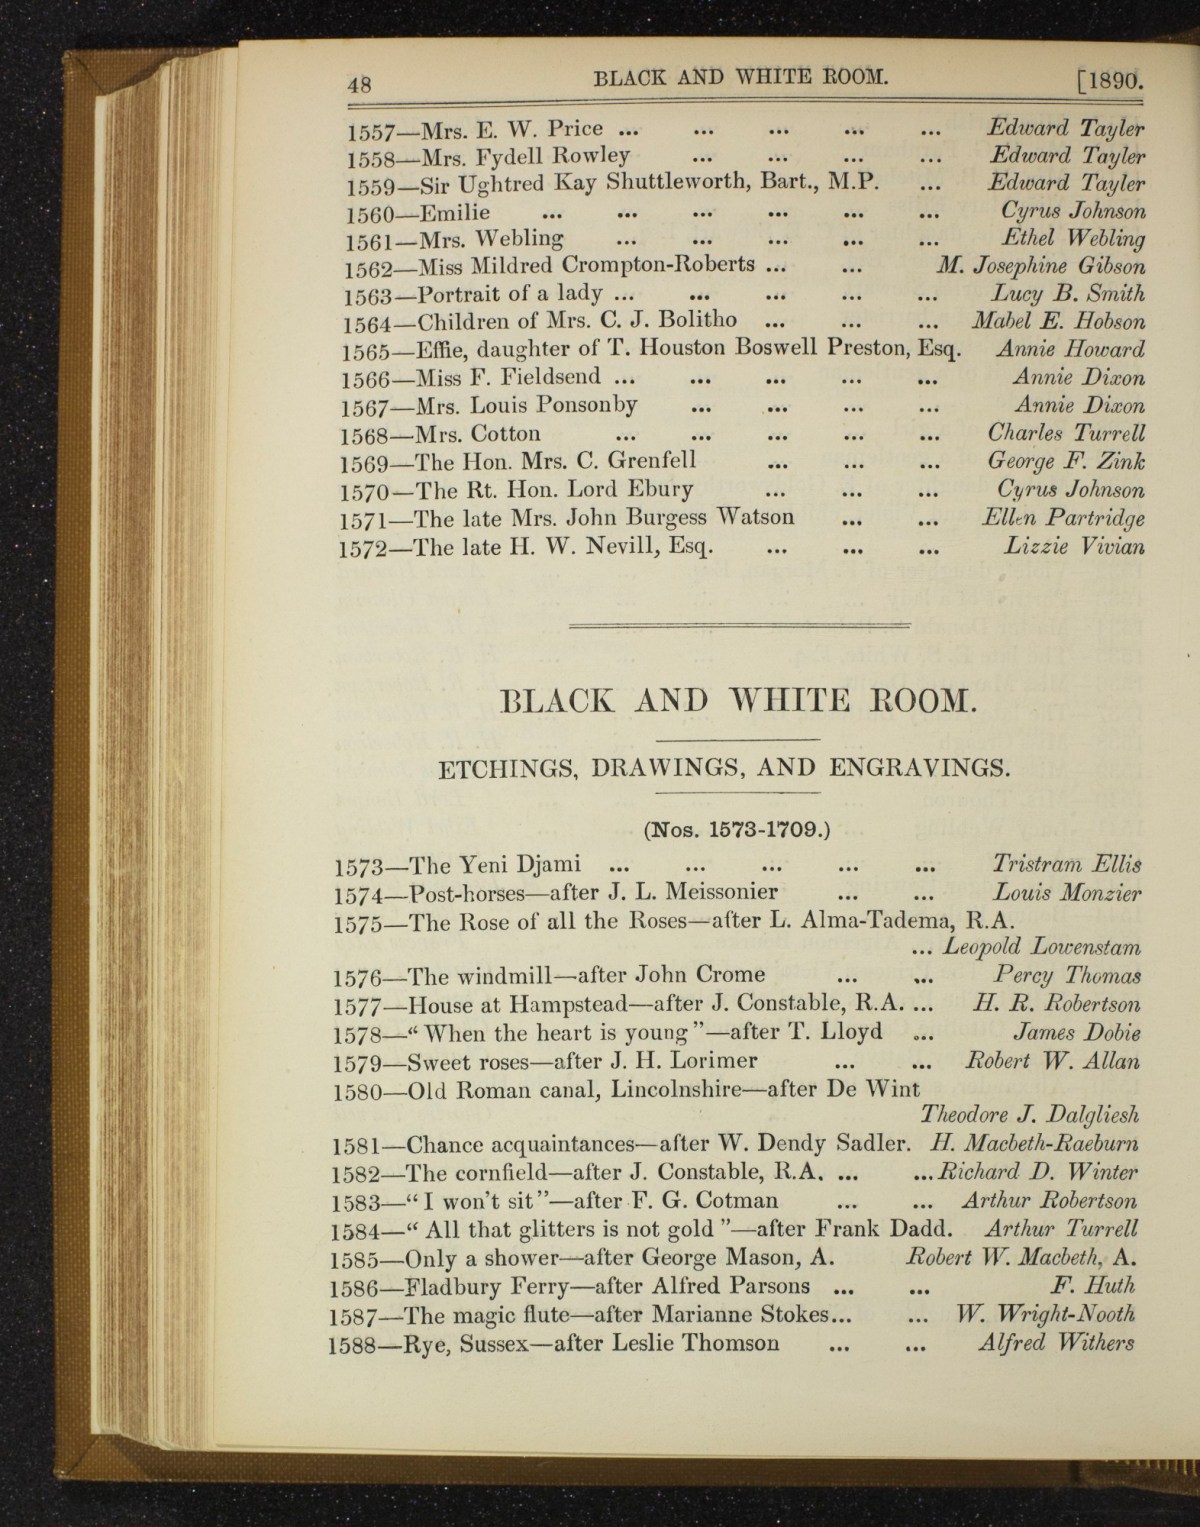 48 BLACK AND WHITE ROOM. [1890.
1557—Mrs. E. W. Price ... ... ... ... ... Edward Tayler
1558—Mrs. Fydell Rowley ... ... ... ... Edward Tayler
1559—Sir Ughtred Kay Shuttleworth, Bart., M.P. ... Edward Tayler
1560—Emilie ... ... ... ... ... ... Cyrus Johnson
1561—Mrs. Webling ... ... ... ... ... Ethel Webling
1562—Miss Mildred Crompton-Roberts ... ... M. Josephine Gibson
1563—Portrait of a lady ... ... ... ... ... Lucy B. Smith
1564—Children of Mrs. C. J. Bolitho ... ... ... Mabel E. Hobson
1565—Effie, daughter of T. Houston Boswell Preston, Esq. Annie Howard
1566—Miss F. Fieldsend ... ... ... ... ... Annie Dixon
1567—Mrs. Louis Ponsonby ... ... ... ... Annie Dixon
1568—Mrs. Cotton ... ... ... ... ... Charles Turrell
1569—The Hon. Mrs. C. Grenfell ... ... ... George F. Zink
1570—The Rt. Hon. Lord Ebury ... ... ... Cyrus Johnson
1571—The late Mrs. John Burgess Watson ... ... Ellen Partridge
1572—The late H. W. Nevill, Esq. ... ... ... Lizzie Vivian
BLACK AND WHITE ROOM.
ETCHINGS, DRAWINGS, AND ENGRAVINGS.
(Nos. 1573-1709.)
1573—The Yeni Djami ... ... ... ... ... Tristram Ellis
1574—Post-horses—after J. L. Meissonier ... ... Louis Monzier
1575—The Rose of all the Roses—after L. Alma-Tadema, R.A.
... Leopold Lowenstam
1576—The windmill—after John Crome ... ... Percy Thomas
1577—House at Hampstead—after J. Constable, R.A. ... H. R. Robertson
1578—“When the heart is young”—after T. Lloyd ... James Dobie
1579—Sweet roses—after J. H. Lorimer ... ... Robert W. Allan
1580—Old Roman canal, Lincolnshire—after De Wint
Theodore J. Dalgliesh
1581—Chance acquaintances—after W. Dendy Sadler. H. Macbeth-Raeburn
1582—The cornfield—after J. Constable, R.A. ... ... Richard D. Winter
1583—“I won't sit”—after F. G. Cotman ... ... Arthur Robertson
1584—“All that glitters is not gold”—after Frank Dadd. Arthur Turrell
1585—Only a shower—after George Mason, A. Robert W. Macbeth, A.
1586—Fladbury Ferry—after Alfred Parsons ... ... F. Huth
1587—The magic flute—after Marianne Stokes... ... W. Wright-Nooth
1588—Rye, Sussex—after Leslie Thomson ... ... Alfred Withers